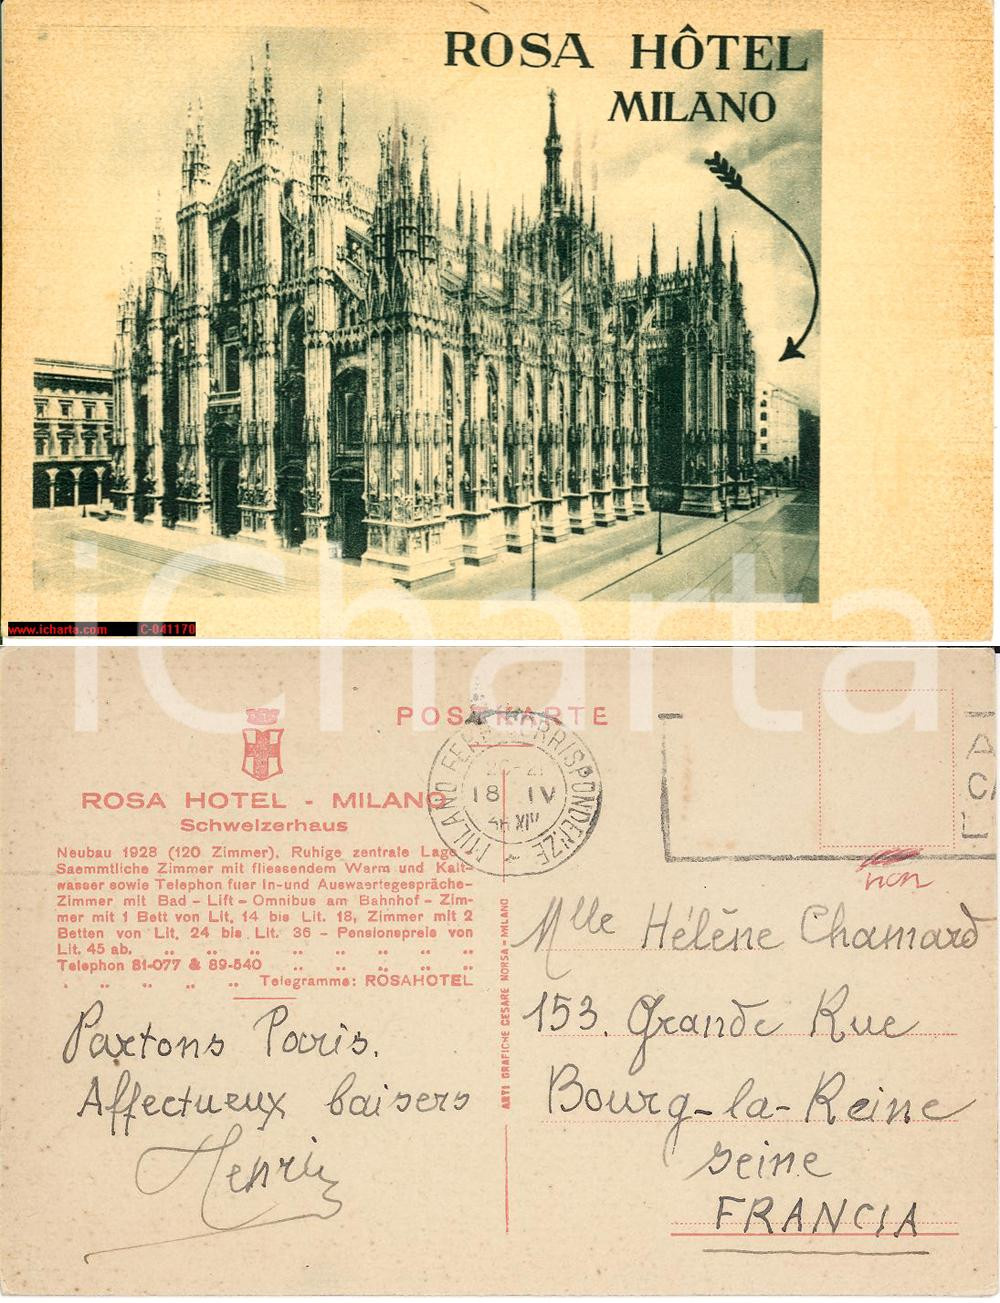 ROSA HÔTEL
MILANO
www.icharta.com C-041170
iCharta
POSTKARTE
ROSA HOTEL - MILANO
Schweizerhaus
Neubau 1928 (120 Zimmer). Ruhige zentrale Lage
Saemmtliche Zimmer mit fliessendem Warm und Kalt-
wasser sowie Telephon fuer In-und Auswaertegespräche-
Zimmer mit Bad - Lift - Omnibus am Bahnhof - Zim-
mer mit 1 Bett von Lit. 14 bis Lit. 18, Zimmer mit 2
Betten von Lit. 24 bis Lit. 36 - Pensionspreis von
Lit. 45 ab. „ „ „ „ „ „ „
Telephon 81-077 & 89-540 „ „ „ „ „
„ „ „ „ Telegramme: ROSAHOTEL
MILANO FERR. CORRISPONDENZE
20-21
18 IV
36 XIV
A
CA
L
non
ARTI GRAFICHE CESARE NORSA - MILANO
Partons Paris.
Affectueux baisers
Henri
Mlle Hélène Chamard
153. Grande Rue
Bourg-la-Reine
Seine
FRANCIA